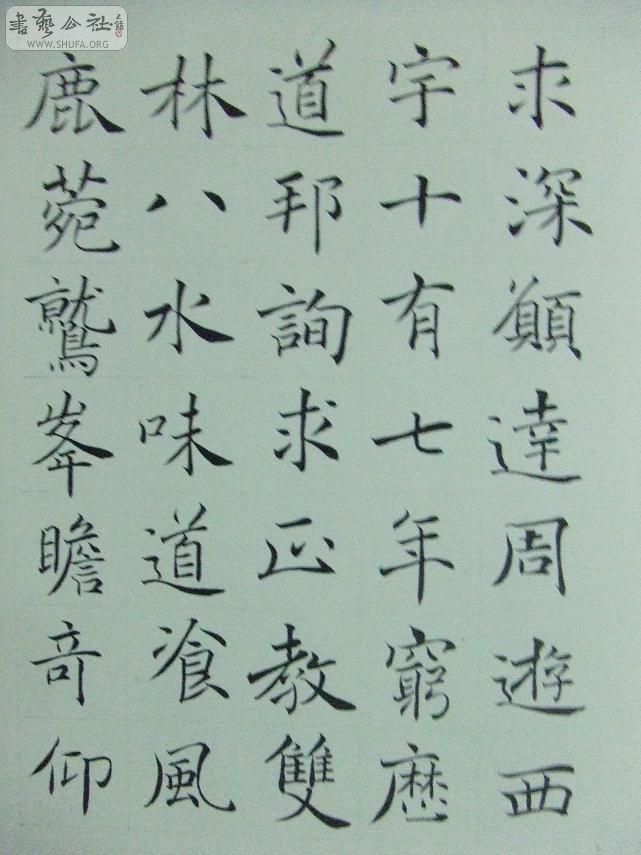 書藝公社
WWW.SHUFA.ORG
求深願達周遊西
宇十有七年窮歷
道邦詢求正教雙
林八水味道飡風
鹿菀鷲峯瞻奇仰